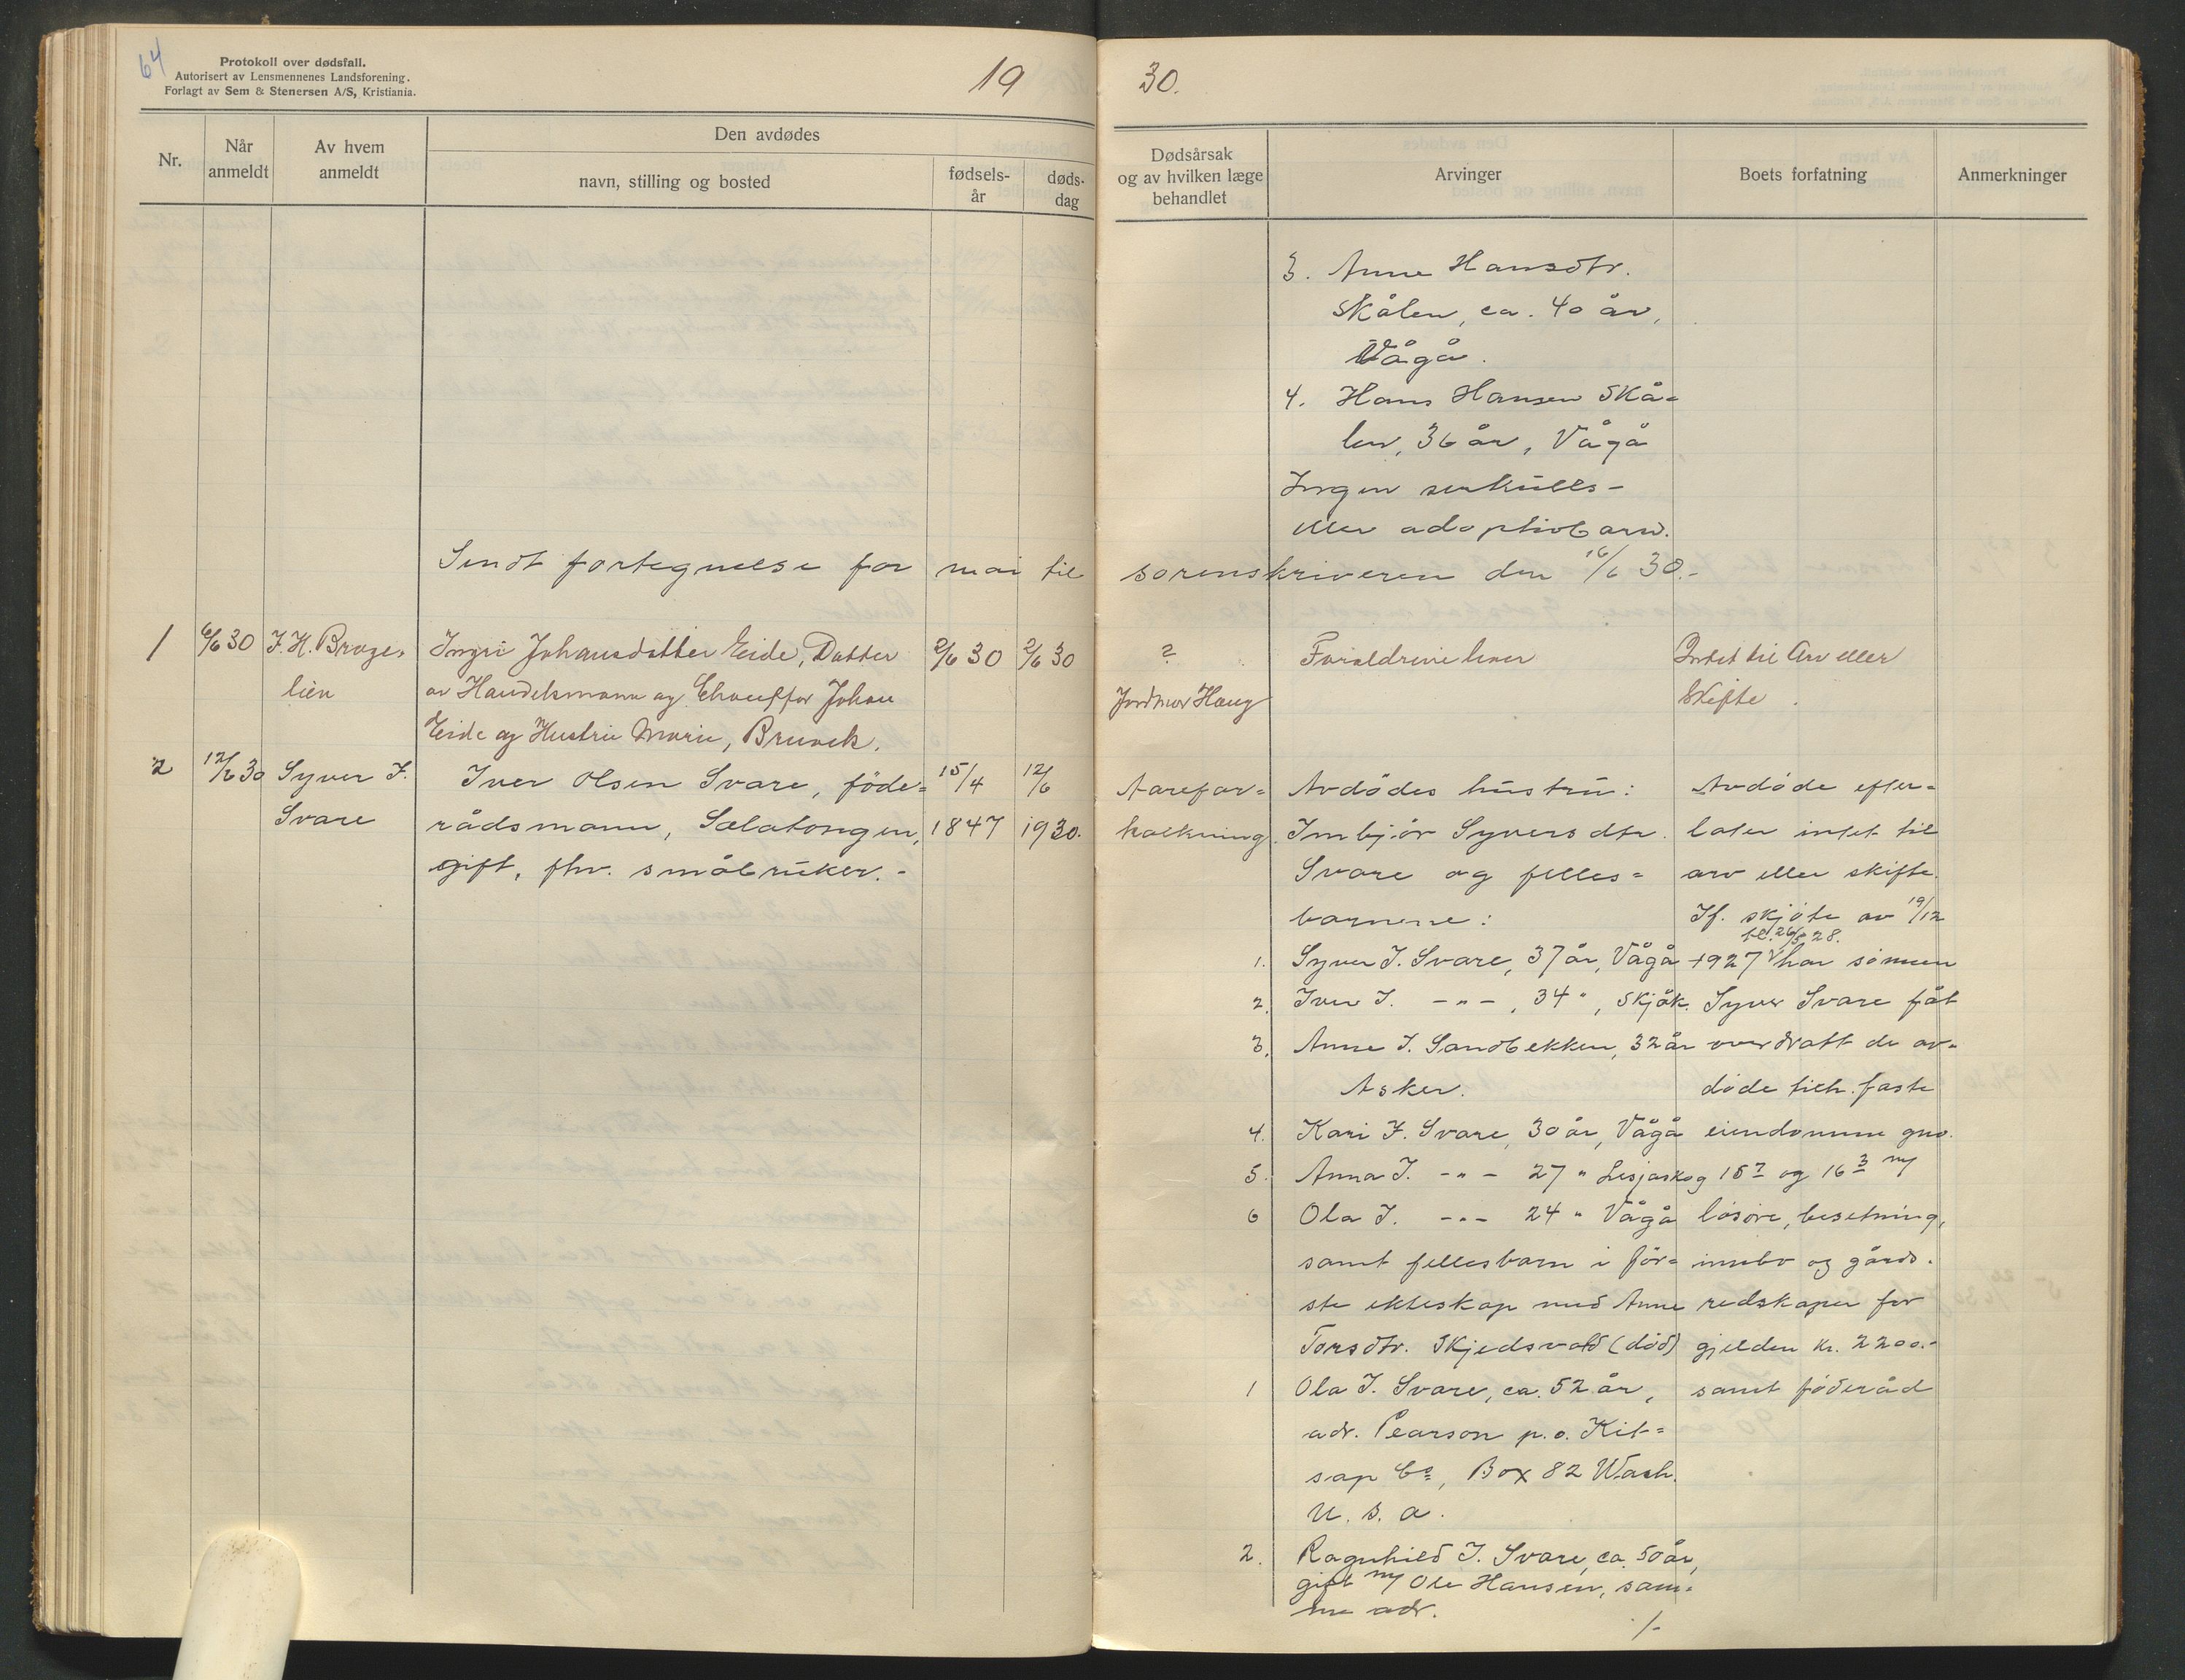 64
Protokoll over dødsfall.
Autorisert av Lensmennenes Landsforening.
Forlagt av Sem & Stenersen A/S, Kristiania.
19
30.
Nr.
Når
anmeldt
Av hvem
anmeldt
Den avdødes
navn, stilling og bosted
fødsels-
år
døds-
dag
Dødsårsak
og av hvilken læge
behandlet
Arvinger
Boets forfatning
Anmerkninger
3. Anne Hansdtr.
Skålen, ca. 40 år,
Vågå.
4. Hans Hansen Skå=
len, 36 år, Vågå
Ingen serkulls-
eller adoptivbarn.
Sendt fortegnelse for mai til sorenskriveren den 16/6 30.-
1 6/6 30 J. H. Bruge-
lien
Ingri Johansdatter Eide, Datter
av Handelsmann og Chauffør Johan
Eide og Hustru Marie, Bruvek.
2/6 30 2/6 30
?
Jordmor Haug
Foreldrene lever
Intet til Arv eller
Skifte.
2 12/6 30 Syver I.
Svare
Iver Olsen Svare, føde=
rådsmann, Sælatongen,
gift, fhv. småbruker.-
15/4
1847
12/6
1930.
Aarefor=
kalkning.
Avdødes hustru:
Imbjør Syversdtr.
Svare og felles=
barnene:
1. Syver I. Svare, 37 år, Vågå
2. Iver I. -"-, 34 ", Skjåk.
3. Anne I. Sandbekken, 32 år
Asker.
4. Kari I. Svare, 30 år, Vågå
5. Anna I. -"- 27 " Lesjaskog
6 Ola I. -"- 24 " Vågå
samt fellesbarn i før=
ste ekteskap med Anne
Torsdtr. Skjedsvold (død)
1 Ola I. Svare, ca. 52 år,
adr. Pearson p.o. Kit=
sap Co, Box 82 Wash.
U. S. A.
2. Ragnhild I. Svare, ca. 50 år,
gift m/ Ole Hansen, sam=
me adr.
Avdøde efter=
later intet til
arv eller skifte.
Jf. skjøte av 19/12
tl. 26/5 28.
1927 har sønnen
Syver Svare fåt
overdratt de av=
døde tilh. faste
eiendomme gno.
15 7 og 16 3 m/
løsøre, besetning,
innbo og gårds-
redskaper for
gjelden kr. 2200.-
samt føderåd
/-